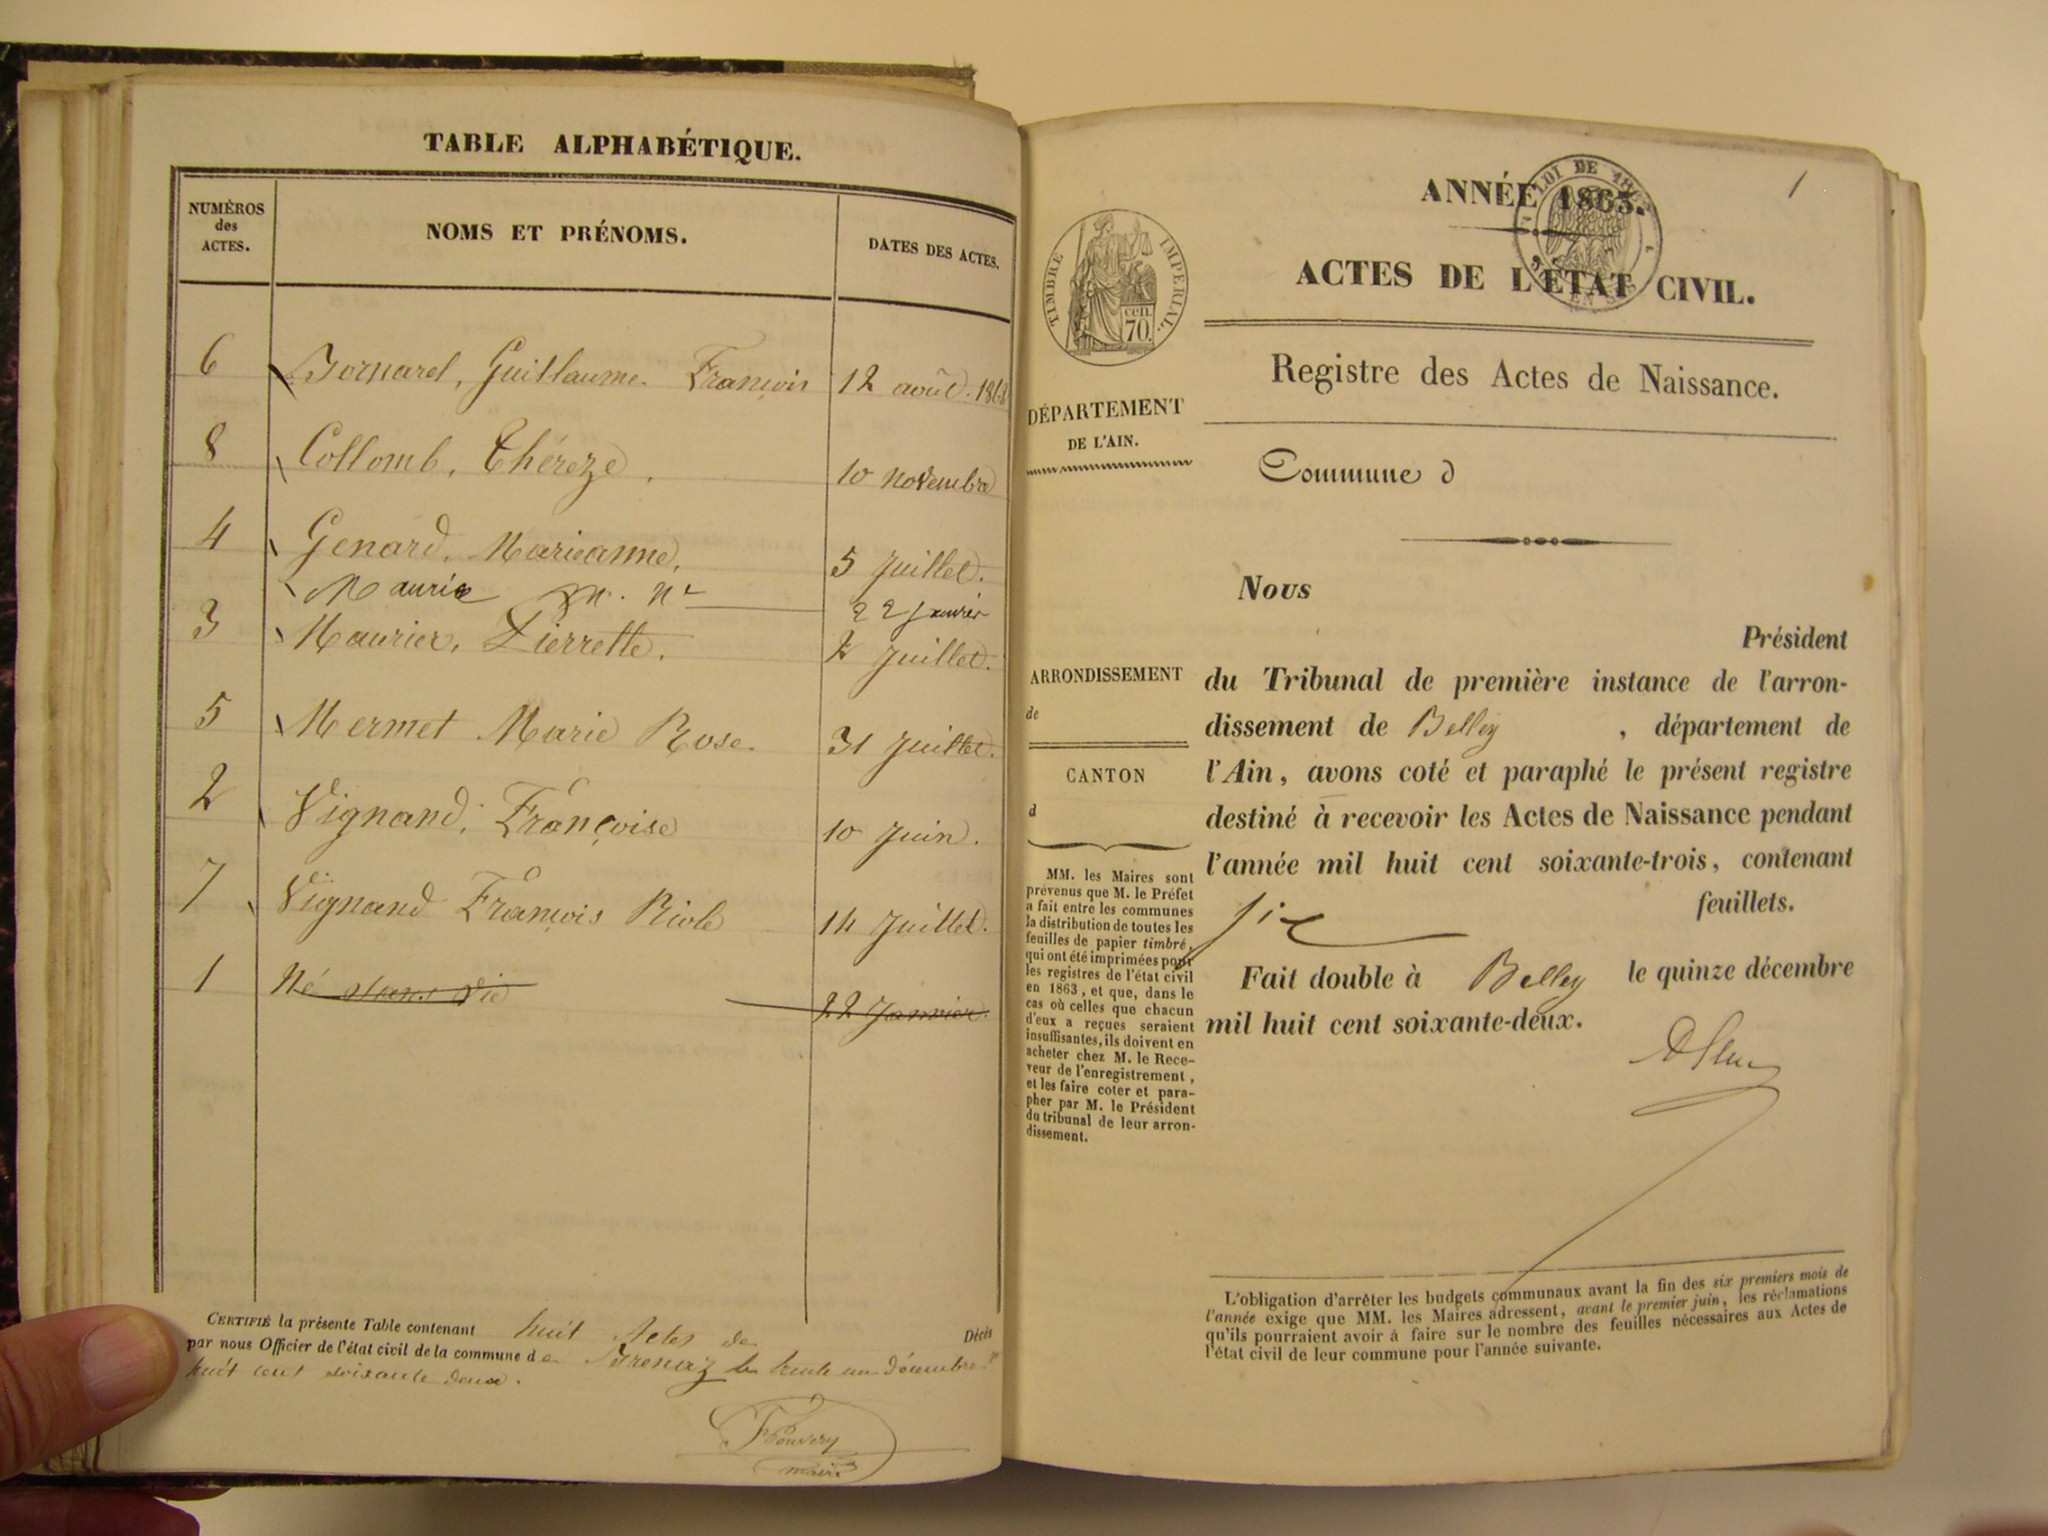 TABLE ALPHABÉTIQUE.
NUMÉROS
des
ACTES.
NOMS ET PRÉNOMS.
DATES DES ACTES.
6 Bornarel, Guillaume François 12 août 1862
8 Collomb, Thérèze. 10 novembre
4 Genard, Marieanne, 5 Juillet.
Maurie m. né 22 janvier
3 Maurier, Pierrette. 2 Juillet.
5 Mermet Marie Rose. 31 Juillet.
2 Vignand, Françoise 10 Juin.
7 Vignand François 14 Juillet.
1 Né sans vie 22 Janvier.
CERTIFIÉ la présente Table contenant huit Actes de Décès
par nous Officier de l'état civil de la commune de Brenaz le trente un Décembre
huit cent soixante deux.
maire
1
LOI DE
ANNÉE 1863.
TIMBRE IMPÉRIAL.
cen.
70.
ACTES DE L'ÉTAT CIVIL.
Registre des Actes de Naissance.
DÉPARTEMENT
DE L'AIN.
Commune d
Nous
Président
ARRONDISSEMENT
de
CANTON
d
du Tribunal de première instance de l'arron-
dissement de Belley , département de
l'Ain, avons coté et paraphé le présent registre
destiné à recevoir les Actes de Naissance pendant
l'année mil huit cent soixante-trois, contenant
six feuillets.
Fait double à Belley le quinze décembre
mil huit cent soixante-deux.
MM. les Maires sont
prévenus que M. le Préfet
a fait entre les communes
la distribution de toutes les
feuilles de papier timbré,
qui ont été imprimées pour
les registres de l'état civil
en 1863, et que, dans le
cas où celles que chacun
d'eux a reçues seraient
insuffisantes, ils doivent en
acheter chez M. le Rece-
veur de l'enregistrement,
et les faire coter et para-
pher par M. le Président
du tribunal de leur arron-
dissement.
L'obligation d'arrêter les budgets communaux avant la fin des six premiers mois de
l'année exige que MM. les Maires adressent, avant le premier juin, les réclamations
qu'ils pourraient avoir à faire sur le nombre des feuilles nécessaires aux Actes de
l'état civil de leur commune pour l'année suivante.